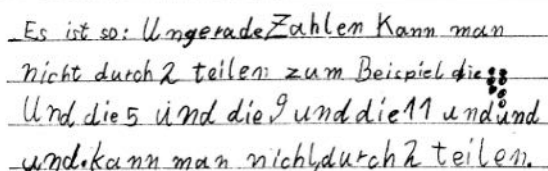 Es ist so: Ungerade Zahlen Kann man
nicht durch 2 teilen zum Beispiel die
Und die 5 und die 9 und die 11 und und
und. kann man nicht durch 2 teilen.